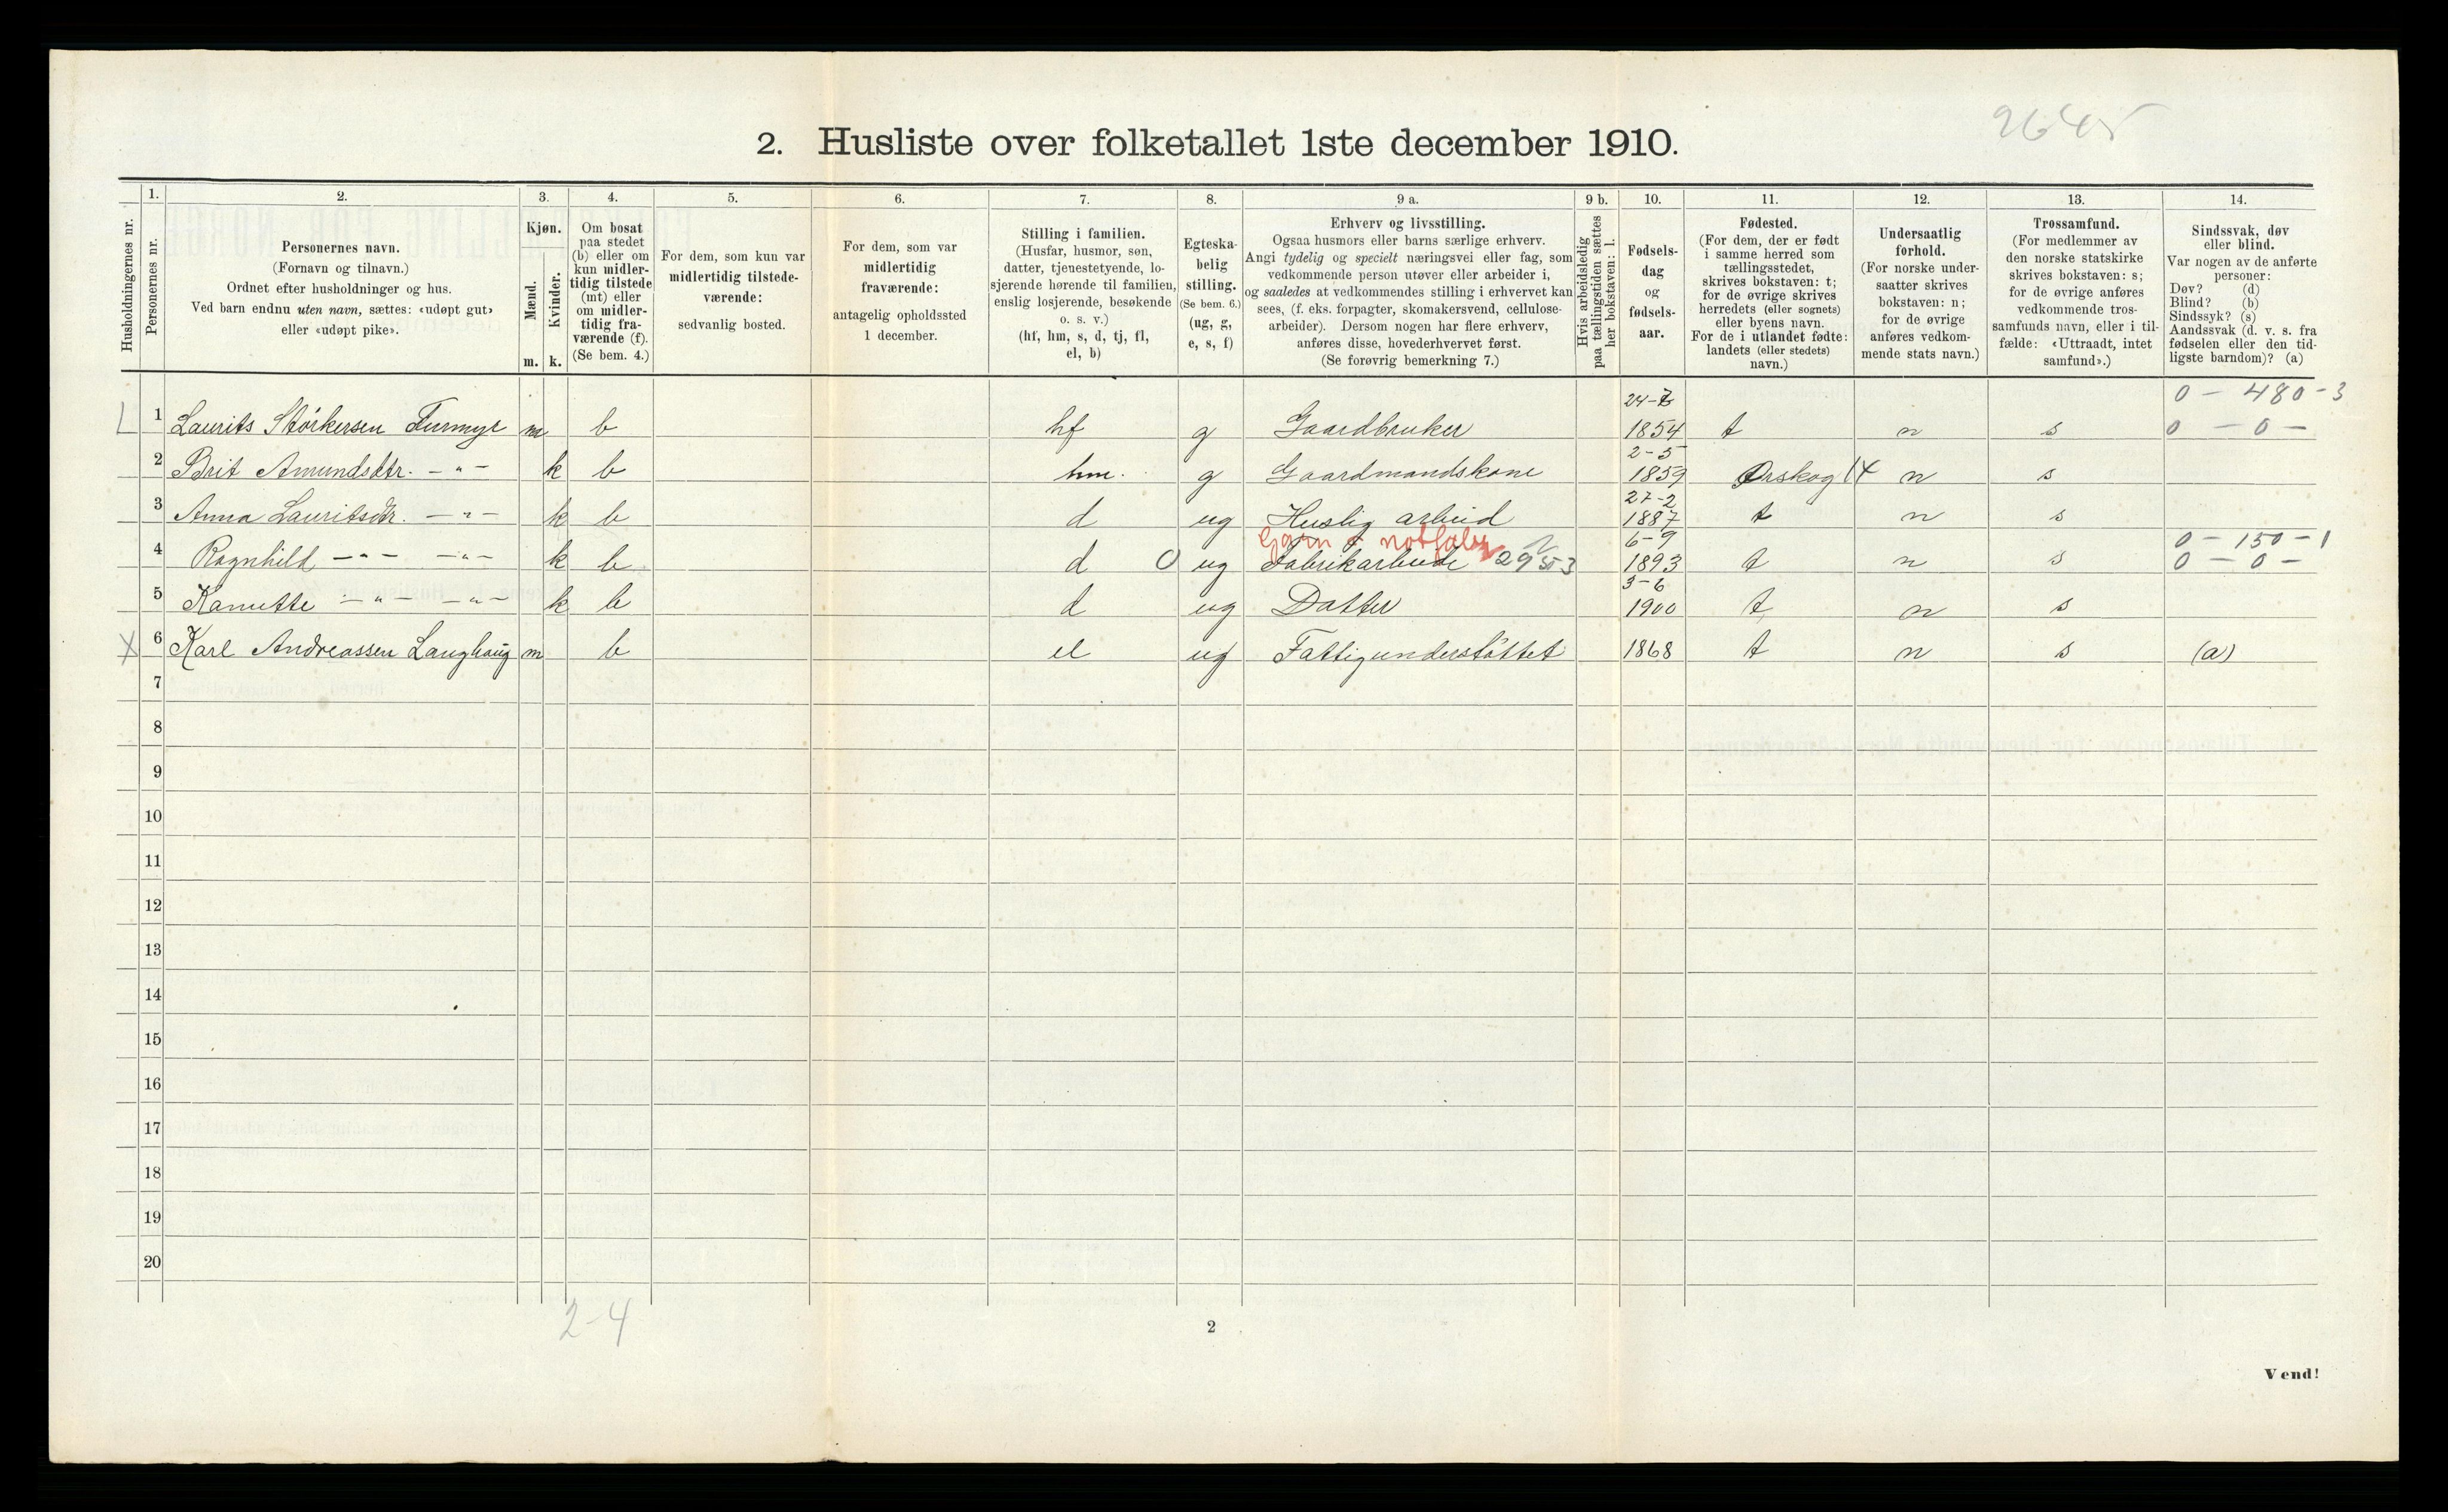 2645
2. Husliste over folketallet 1ste december 1910.
1. 2. 3. 4. 5. 6. 7. 8. 9 a. 9 b. 10. 11. 12. 13. 14.
Husholdningernes nr.
Personernes nr.
Personernes navn.
(Fornavn og tilnavn.)
Ordnet efter husholdninger og hus.
Ved barn endnu uten navn, sættes: «udøpt gut»
eller «udøpt pike».
Kjøn.
Mænd.
Kvinder.
m. k.
Om bosat
paa stedet
(b) eller om
kun midler-
tidig tilstede
(mt) eller
om midler-
tidig fra-
værende (f).
(Se bem. 4.)
For dem, som kun var
midlertidig tilstede-
værende:
sedvanlig bosted.
For dem, som var
midlertidig
fraværende:
antagelig opholdssted
1 december.
Stilling i familien.
(Husfar, husmor, søn,
datter, tjenestetyende, lo-
sjerende hørende til familien,
enslig losjerende, besøkende
o. s. v.)
(hf, hm, s, d, tj, fl,
el, b)
Egteska-
belig
stilling.
(Se bem. 6.)
(ug, g,
e, s, f)
Erhverv og livsstilling.
Ogsaa husmors eller barns særlige erhverv.
Angi tydelig og specielt næringsvei eller fag, som
vedkommende person utøver eller arbeider i,
og saaledes at vedkommendes stilling i erhvervet kan
sees, (f. eks. forpagter, skomakersvend, cellulose-
arbeider). Dersom nogen har flere erhverv,
anføres disse, hovederhvervet først.
(Se forøvrig bemerkning 7.)
Hvis arbeidsledig
paa tællingstiden sættes
her bokstaven: l.
Fødsels-
dag
og
fødsels-
aar.
Fødested.
(For dem, der er født
i samme herred som
tællingsstedet,
skrives bokstaven: t;
for de øvrige skrives
herredets (eller sognets)
eller byens navn.
For de i utlandet fødte:
landets (eller stedets)
navn.)
Undersaatlig
forhold.
(For norske under-
saatter skrives
bokstaven: n;
for de øvrige
anføres vedkom-
mende stats navn.)
Trossamfund.
(For medlemmer av
den norske statskirke
skrives bokstaven: s;
for de øvrige anføres
vedkommende tros-
samfunds navn, eller i til-
fælde: «Uttraadt, intet
samfund».)
Sindssvak, døv
eller blind.
Var nogen av de anførte
personer:
Døv? (d)
Blind? (b)
Sindssyk? (s)
Aandssvak (d. v. s. fra
fødselen eller den tid-
ligste barndom)? (a)
24-7 0 - 480 - 3
1 Laurits Störkersen Furmyr m b hf g Gaardbruker 1854 t n s 0 - 0 -
2-5
2 Brit Amundsdtr. - " - k b hm. g Gaardmandskone 1859 Ørskog n s
27-2
3 Anna Lauritsdtr. - " - k b d ug Huslig arbeid 1887 t n s
6-9 0 - 150 - 1
4 Ragnhild - " - - " - k b d 0 ug Fabrikarbeide 2953 1893 t n s 0 - 0 -
3-6
5 Kanutte - " - - " - k b d ug Datter 1900 t n s
X 6 Karl Andreassen Langhaug m b el ug Fattigunderstöttet 1868 t n s (a)
7
8
9
10
11
12
13
14
15
16
17
18
19
20
2-4
2
Vend!